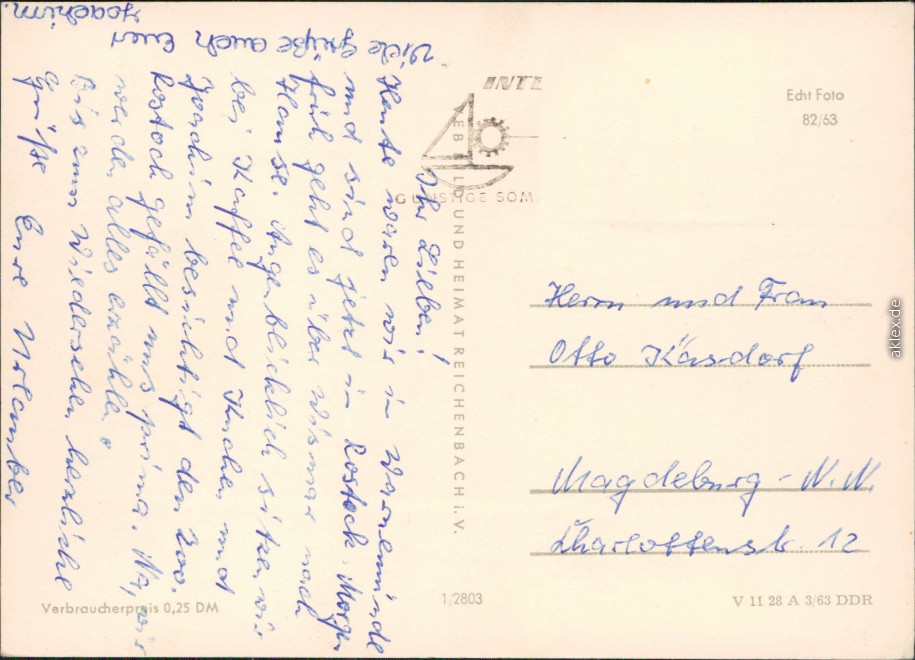 Ihr Lieben!
Heute waren wir in Warnemünde
und sind jetzt in Rostock. Morgen
früh geht es über Wismar nach
Hause. Augenblicklich sitzen wir
bei Kaffee und Kuchen und
Joachim besichtigt den Zoo.
Rostock gefällt uns prima. Na, wir
werden alles erzählen.
Bis zum Wiedersehen herzliche
Grüße Eure
Viele Grüße auch Euer
Joachim.
INTE
GÜNSTIGE SOM
BILD UND HEIMAT REICHENBACH i. V.
Echt Foto
82/63
Herrn und Frau
Otto Käsdorf
Magdeburg - N.W.
Charlottenstr. 12
Verbraucherpreis 0,25 DM
1/2803
V 11 28 A 3/63 DDR
aklex.de